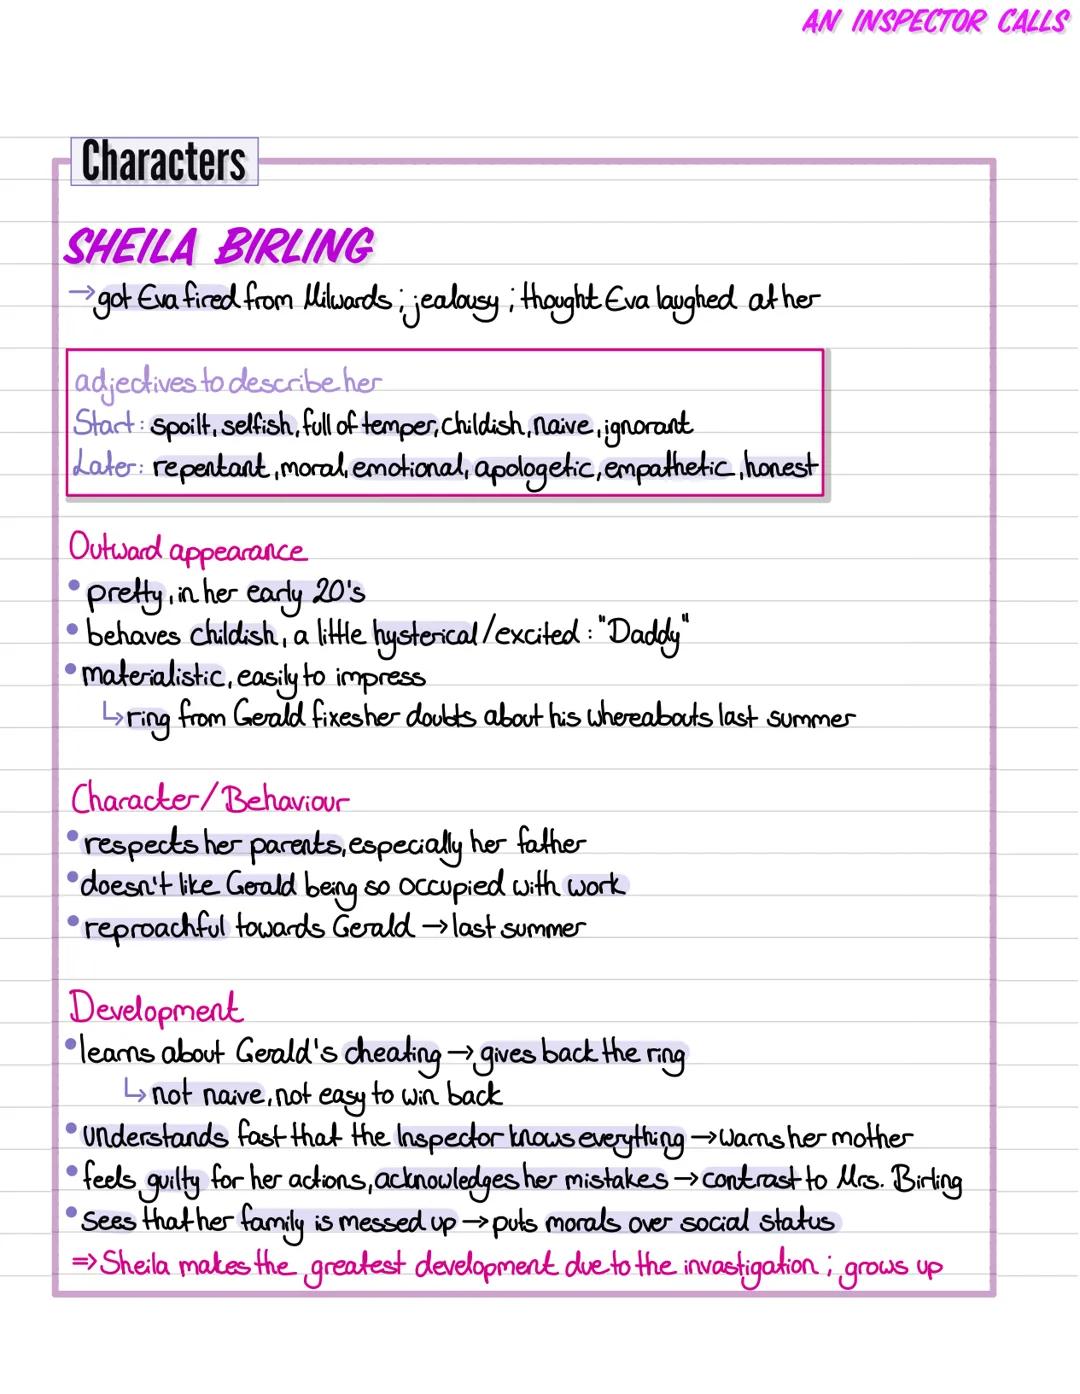 AN INSPECTOR CALLS
Characters
SHEILA BIRLING
→ got Eva fired from Milwards ; jealousy ; thought Eva laughed at her
adjectives to describe her
Start: spoilt, selfish, full of temper, childish, naive, ignorant
Later: repentant, moral, emotional, apologetic, empathetic, honest
Outward appearance
• pretty, in her early 20's
• behaves childish, a little hysterical/excited : "Daddy"
• materialistic, easily to impress
↳ ring from Gerald fixes her doubts about his whereabouts last summer
Character/Behaviour
• respects her parents, especially her father
• doesn't like Gerald being so occupied with work
• reproachful towards Gerald → last summer
Development
• learns about Gerald's cheating → gives back the ring
↳ not naive, not easy to win back
• understands fast that the Inspector knows everything → warns her mother
• feels guilty for her actions, acknowledges her mistakes → contrast to Mrs. Birling
• sees that her family is messed up → puts morals over social status
⇒ Sheila makes the greatest development due to the invastigation ; grows up